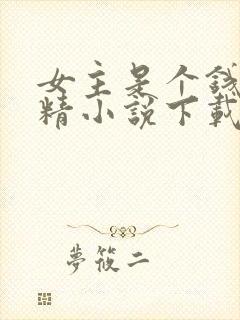 女主是个钱
精小说下载
夢筱二